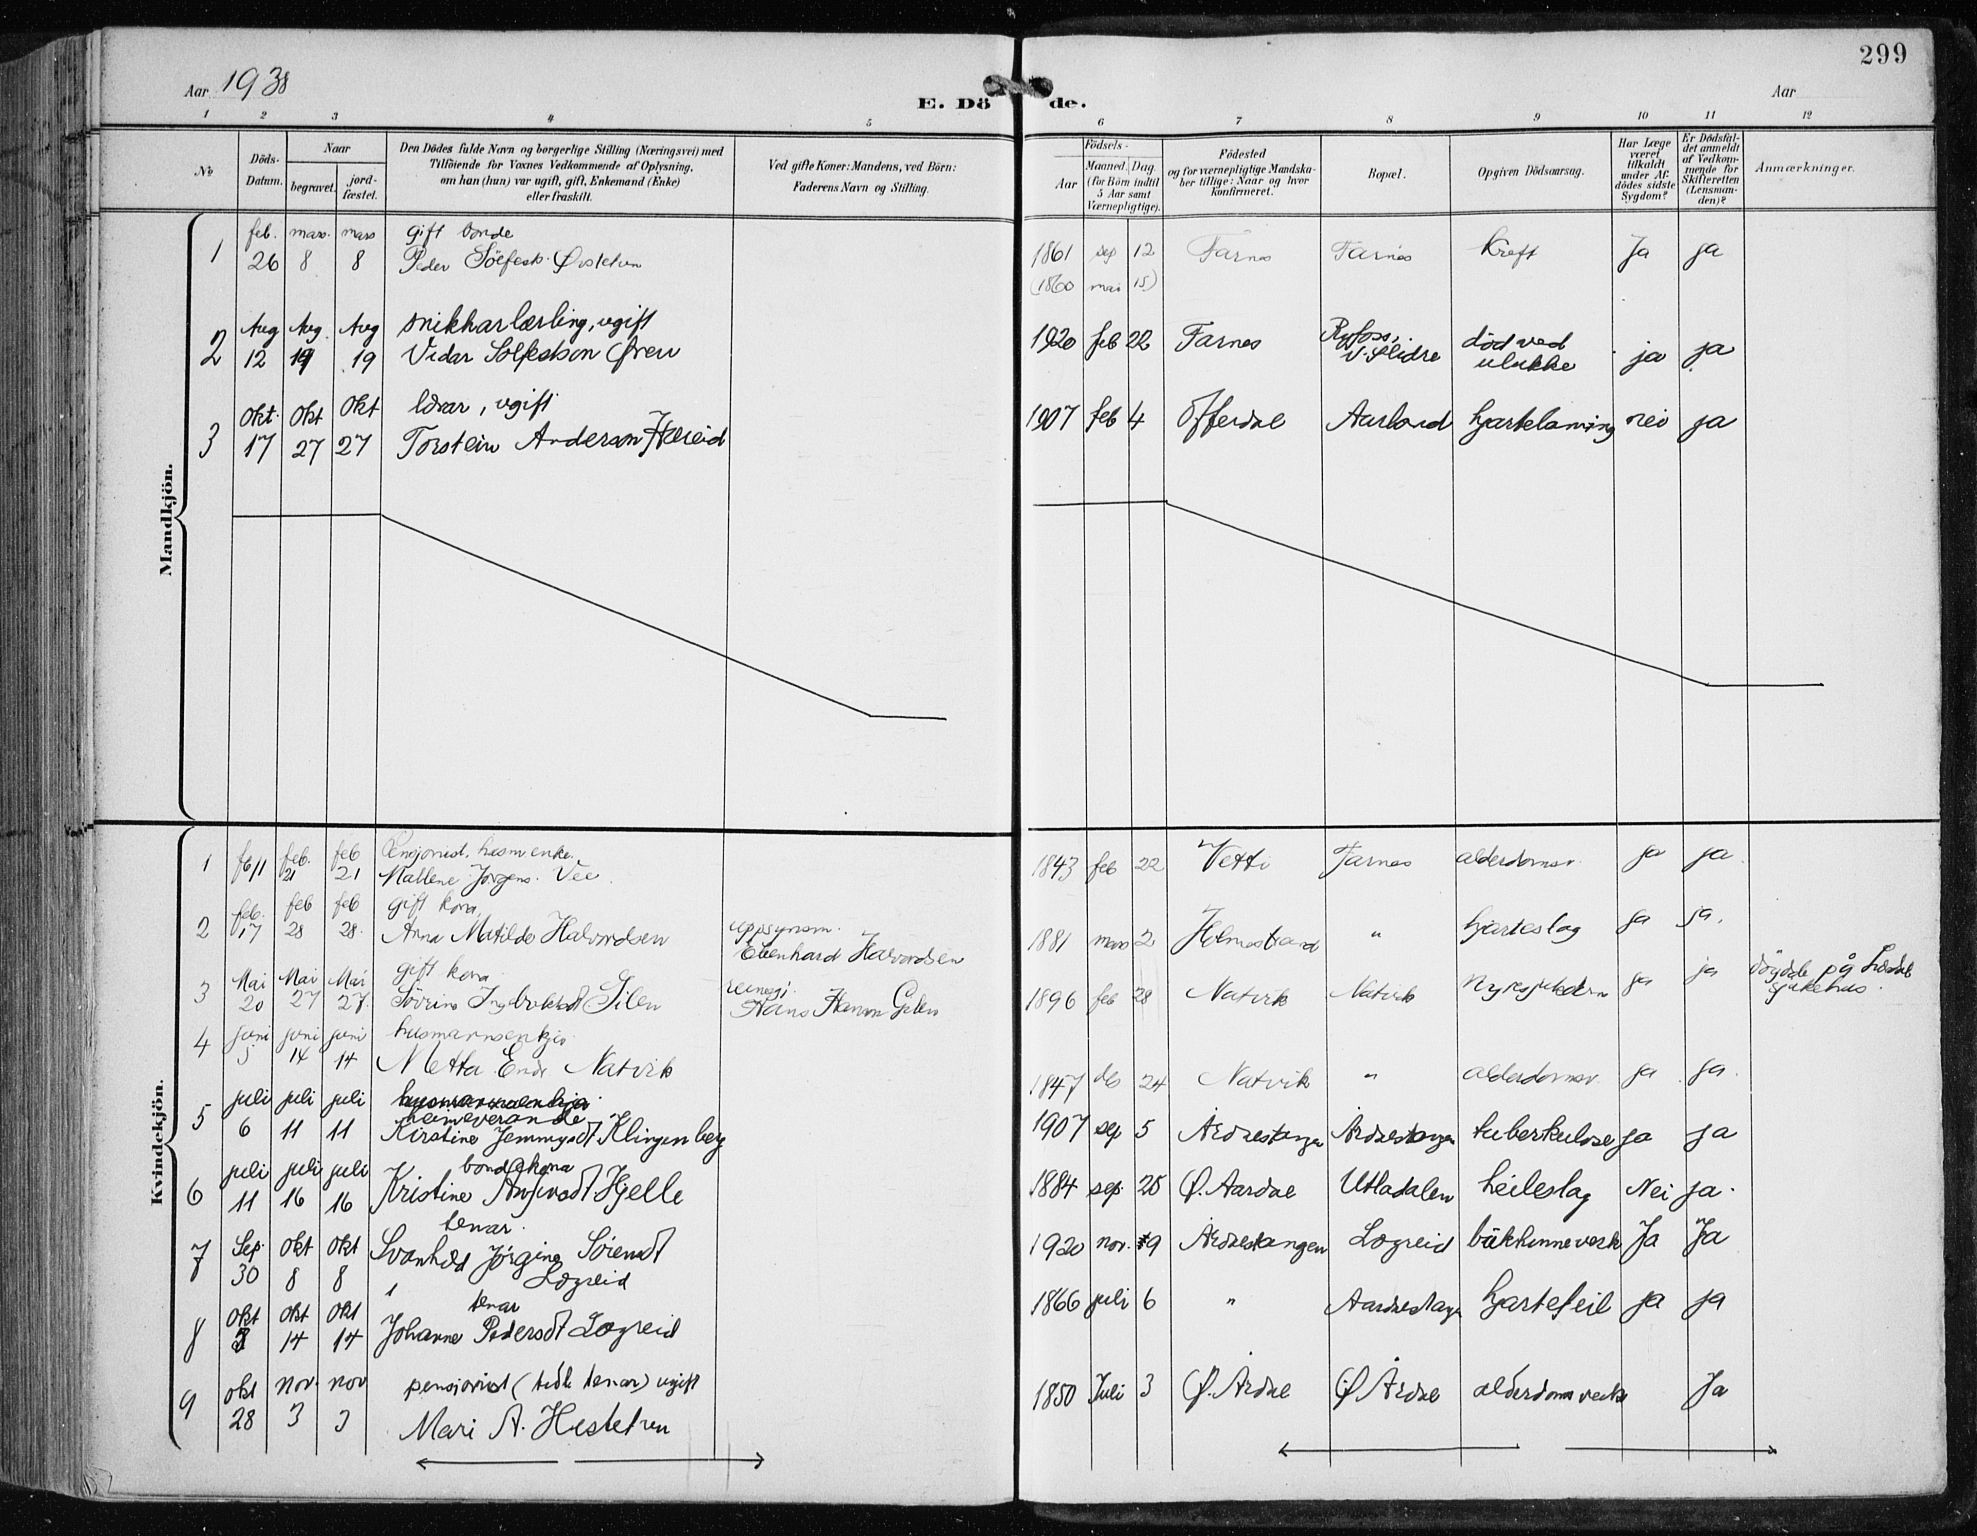 299
Aar 1938
E. Dö de.
Aar
1 2 3 4 5 6 7 8 9 10 11 12
No
Döds-Datum.
Naar
begravet.
jordfæstet.
Den Dödes fulde Navn og borgerlige Stilling (Næringsvei) med
Tilföiende for Voxnes Vedkommende af Oplysning,
om han (hun) var ugift, gift, Enkemand (Enke)
eller fraskilt.
Ved gifte Koner: Mandens, ved Börn:
Faderens Navn og Stilling.
Födsels-
Aar
Maaned. Dag.
(for Börn indtil
5 Aar samt
Værnepligtige).
Födested
og for værnepligtige Mandska-
ber tillige: Naar og hvor
konfirmeret.
Bopæl.
Opgiven Dödsaarsag.
Har Læge
været
tilkaldt
under Af-
dödes sidste
Sygdom?
Er Dödsfal-
det anmeldt
af Vedkom-
mende for
Skifteretten
(Lensman-
den)?
Anmærkninger.
Mandkjön.
feb. mars. mars gift bonde
1 26 8 8 Peder 1861 sep 12 Farnes Farnes Kreft Ja ja
(1860 mai 15)
Aug Aug. Aug snikkarlærling, ugift
2 12 19 19 Vidar Solfestson Øren 1920 feb 22 Farnes V. Slidre død ved ulukke ja ja
Okt. Okt Okt lærar, ugift
3 17 27 27 Torstein Anderson Hæreid 1907 feb 4 Offerdal Aurland hjartelaming nei ja
Kvindekjön.
feb. feb husm enke.
1 fe 11 21 21 Mallene Jørgens. Vee 1843 feb 22 Vetti Farnes alderdomsv. ja ja
feb. feb feb gift kona
2 17 28 28. Anna Matilde Halvordsen uppsynsm. 1881 mars 2 Holmestrand " hjarteslag ja ja.
Ebenhard Halvordsen
Mai Mai Mai gift kona
3 20 27 27. Hans Hanson 1896 feb 28 Natvik Natvik ja ja døydde på Lærdal
sjukehus.
juni juni juni husmannsenkja
4 5 14 14 Metta Endr Natvik 1847 des 24 Natvik " alderdomsv. ja ja.
juli juli juli husmannsenkja
heimeverande
5 6 11 11 Kirstine Jemmysdt Klingenberg 1907 sep 5 Årdalstangen Årdalstangen tuberkulose ja ja
juli juli juli bondekona
6 11 16 16 Kristine Hjelle 1884 sep. 25 Ø. Aardal Utladalen heileslag Nei ja.
tenar.
Sep. Okt Okt
7 30 8 8 Svanhild Jørgine Sørensdt 1920 nov. 19 Årdalstangen Lægreid Ja Ja
Lægreid
Okt Okt Okt tenar
8 14 14 Johanne Pedersdt Lægreid 1866 juli 6 " Aardalstangen hjartefeil ja ja
okt nov. nov pensjonist (tidl. tenar) ugift
9 28 3 3 Mari A. Hestetun 1850 Juli 3 Ø. Årdal Ø Årdal Ja